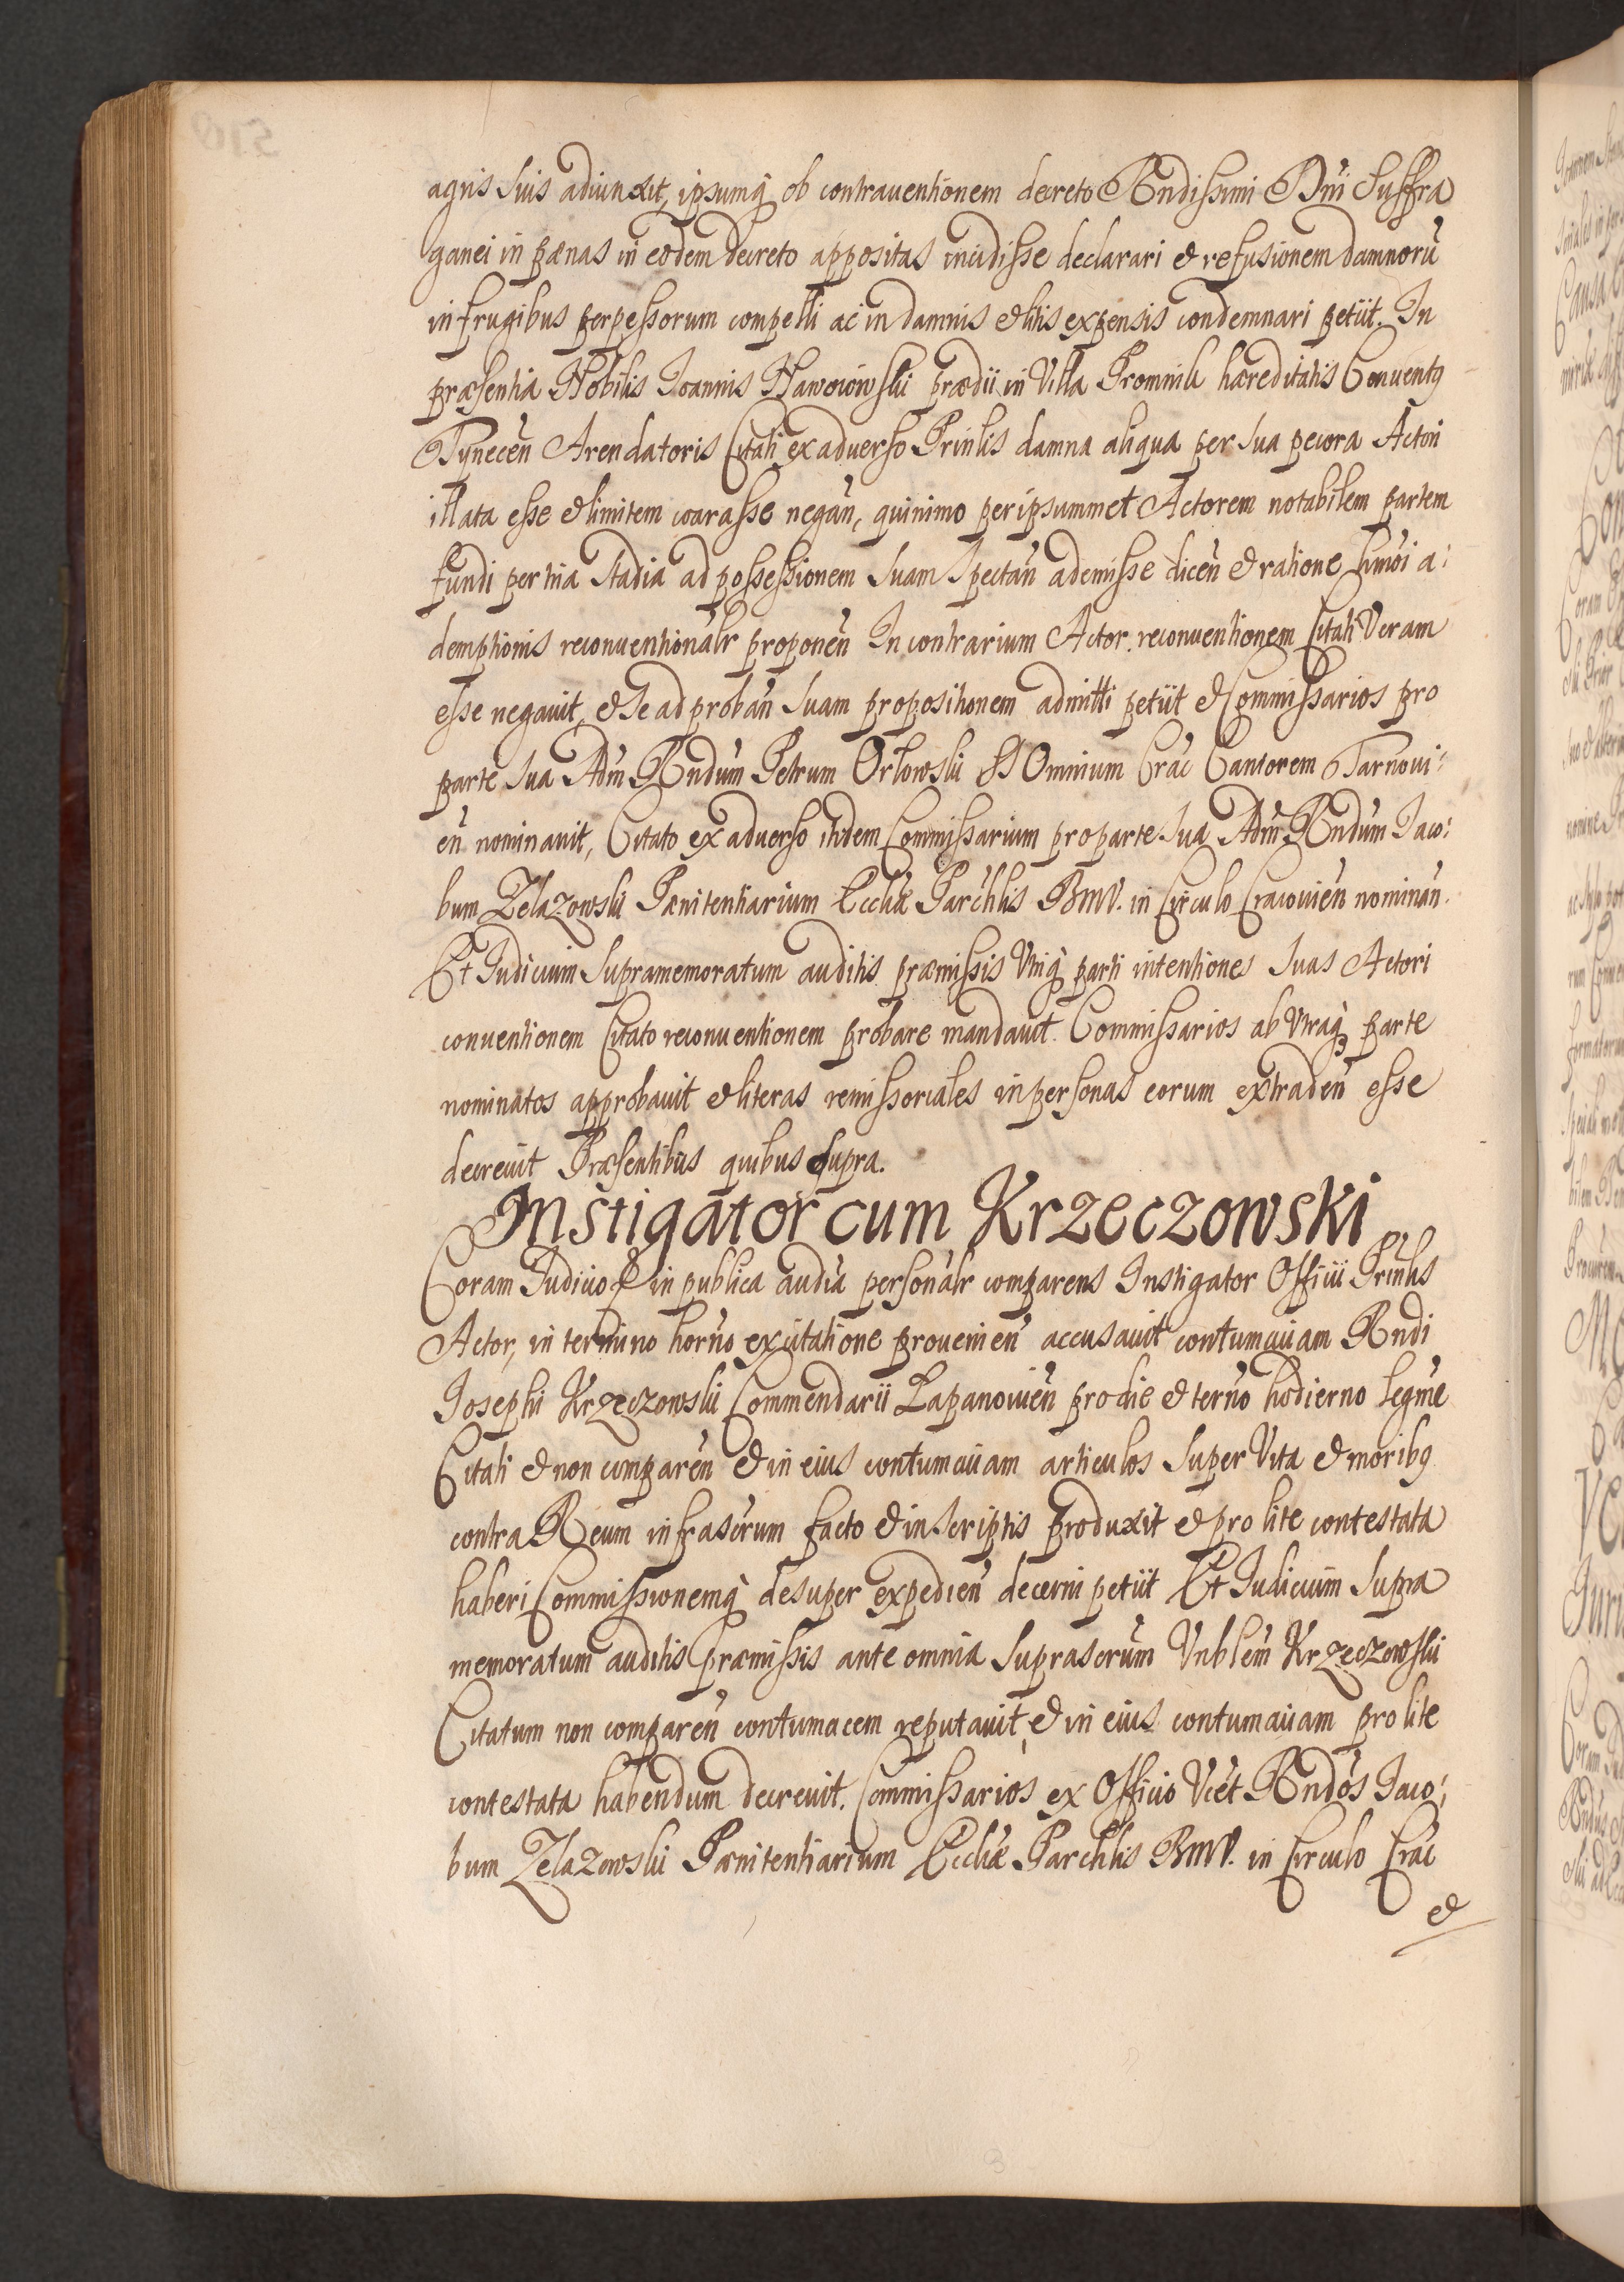 agris suis adiunxit, ipsumq́ ob contrauentionem decreto Rndissimi Dni Suffra
ganei in pænas in eodem decreto appositas incidisse declarari et refusionem damnorū
in frugibus perpessorum compelli ac in damnis et litis expensis condemnari petiit. In
præsentia Nobilis Joannis Nawoiowski prædii in Villa Promnik hæreditatis Conuentꝰ
Tynecen̄ Arendatoris Citati ex aduerso Prinlis damna aliqua per sua pecora Actori
illata esse et limitem coarasse negan̄, quinimo per ipsummet Actorem notabilem partem
fundi per tria stadia ad possessionem suam spectan̄ ademisse dicen̄ et ratione hmōi a:
demptionis reconuentionalr̄ proponen̄ In contrarium Actor reconuentionem Citati Veram
esse negauit, et se ad proban̄ suam propositionem admitti petiit et Commissarios pro
parte sua Adm̄ Rndum Petrum Orłowski SS Omnium Crac̄ Cantorem Tarnoui:
en̄ nominauit, Citato ex aduerso itidem Commissarium pro parte sua Adm̄ Rndum Jaco:
bum Zelazowski Pænitentiarium Eccliæ Parchlis BMV. in Circulo Cracouien̄ nominan̄.
Et Judicium supramemoratum auditis præmissis Vtriq́ parti intentiones suas Actori
conuentionem Citato reconuentionem probare mandauit. Commissarios ab Vtraq́ʒ parte
nominatos approbauit et literas remissoriales in personas eorum extraden̄ esse
decreuit Præsentibus quibus supra.
Instigator cum Krzeczowski
Coram Judicio et in publica audīa personalr̄ comparens Instigator Officii Prinlis
Actor, in termino horno ex citatione prouenien̄ accusauit contumaciam Rndi
Josephi Krzeczowski Commendarii Łapanouien̄ pro die et terno hodierno legme
Citati et non comparen̄ et in eius contumaciam articulos super Vita et moribꝰ
contra Reum infrascrum facto et in scriptis produxit et pro lite contestata
haberi Commissionemq́ desuper expedien̄ decerni petiit Et Judicium supra
memoratum auditis præmissis ante omnia suprascrum Vnblem Krzeczowski
Citatum non comparen̄ contumacem reputauit, et in eius contumaciam pro lite
contestata habendum decreuit. Commissarios ex Officio Vcet Rndos Jaco:
bum Zelazowski Pænitentiarium Eccliæ Parchlis BMV. in Circulo Crac̄
et